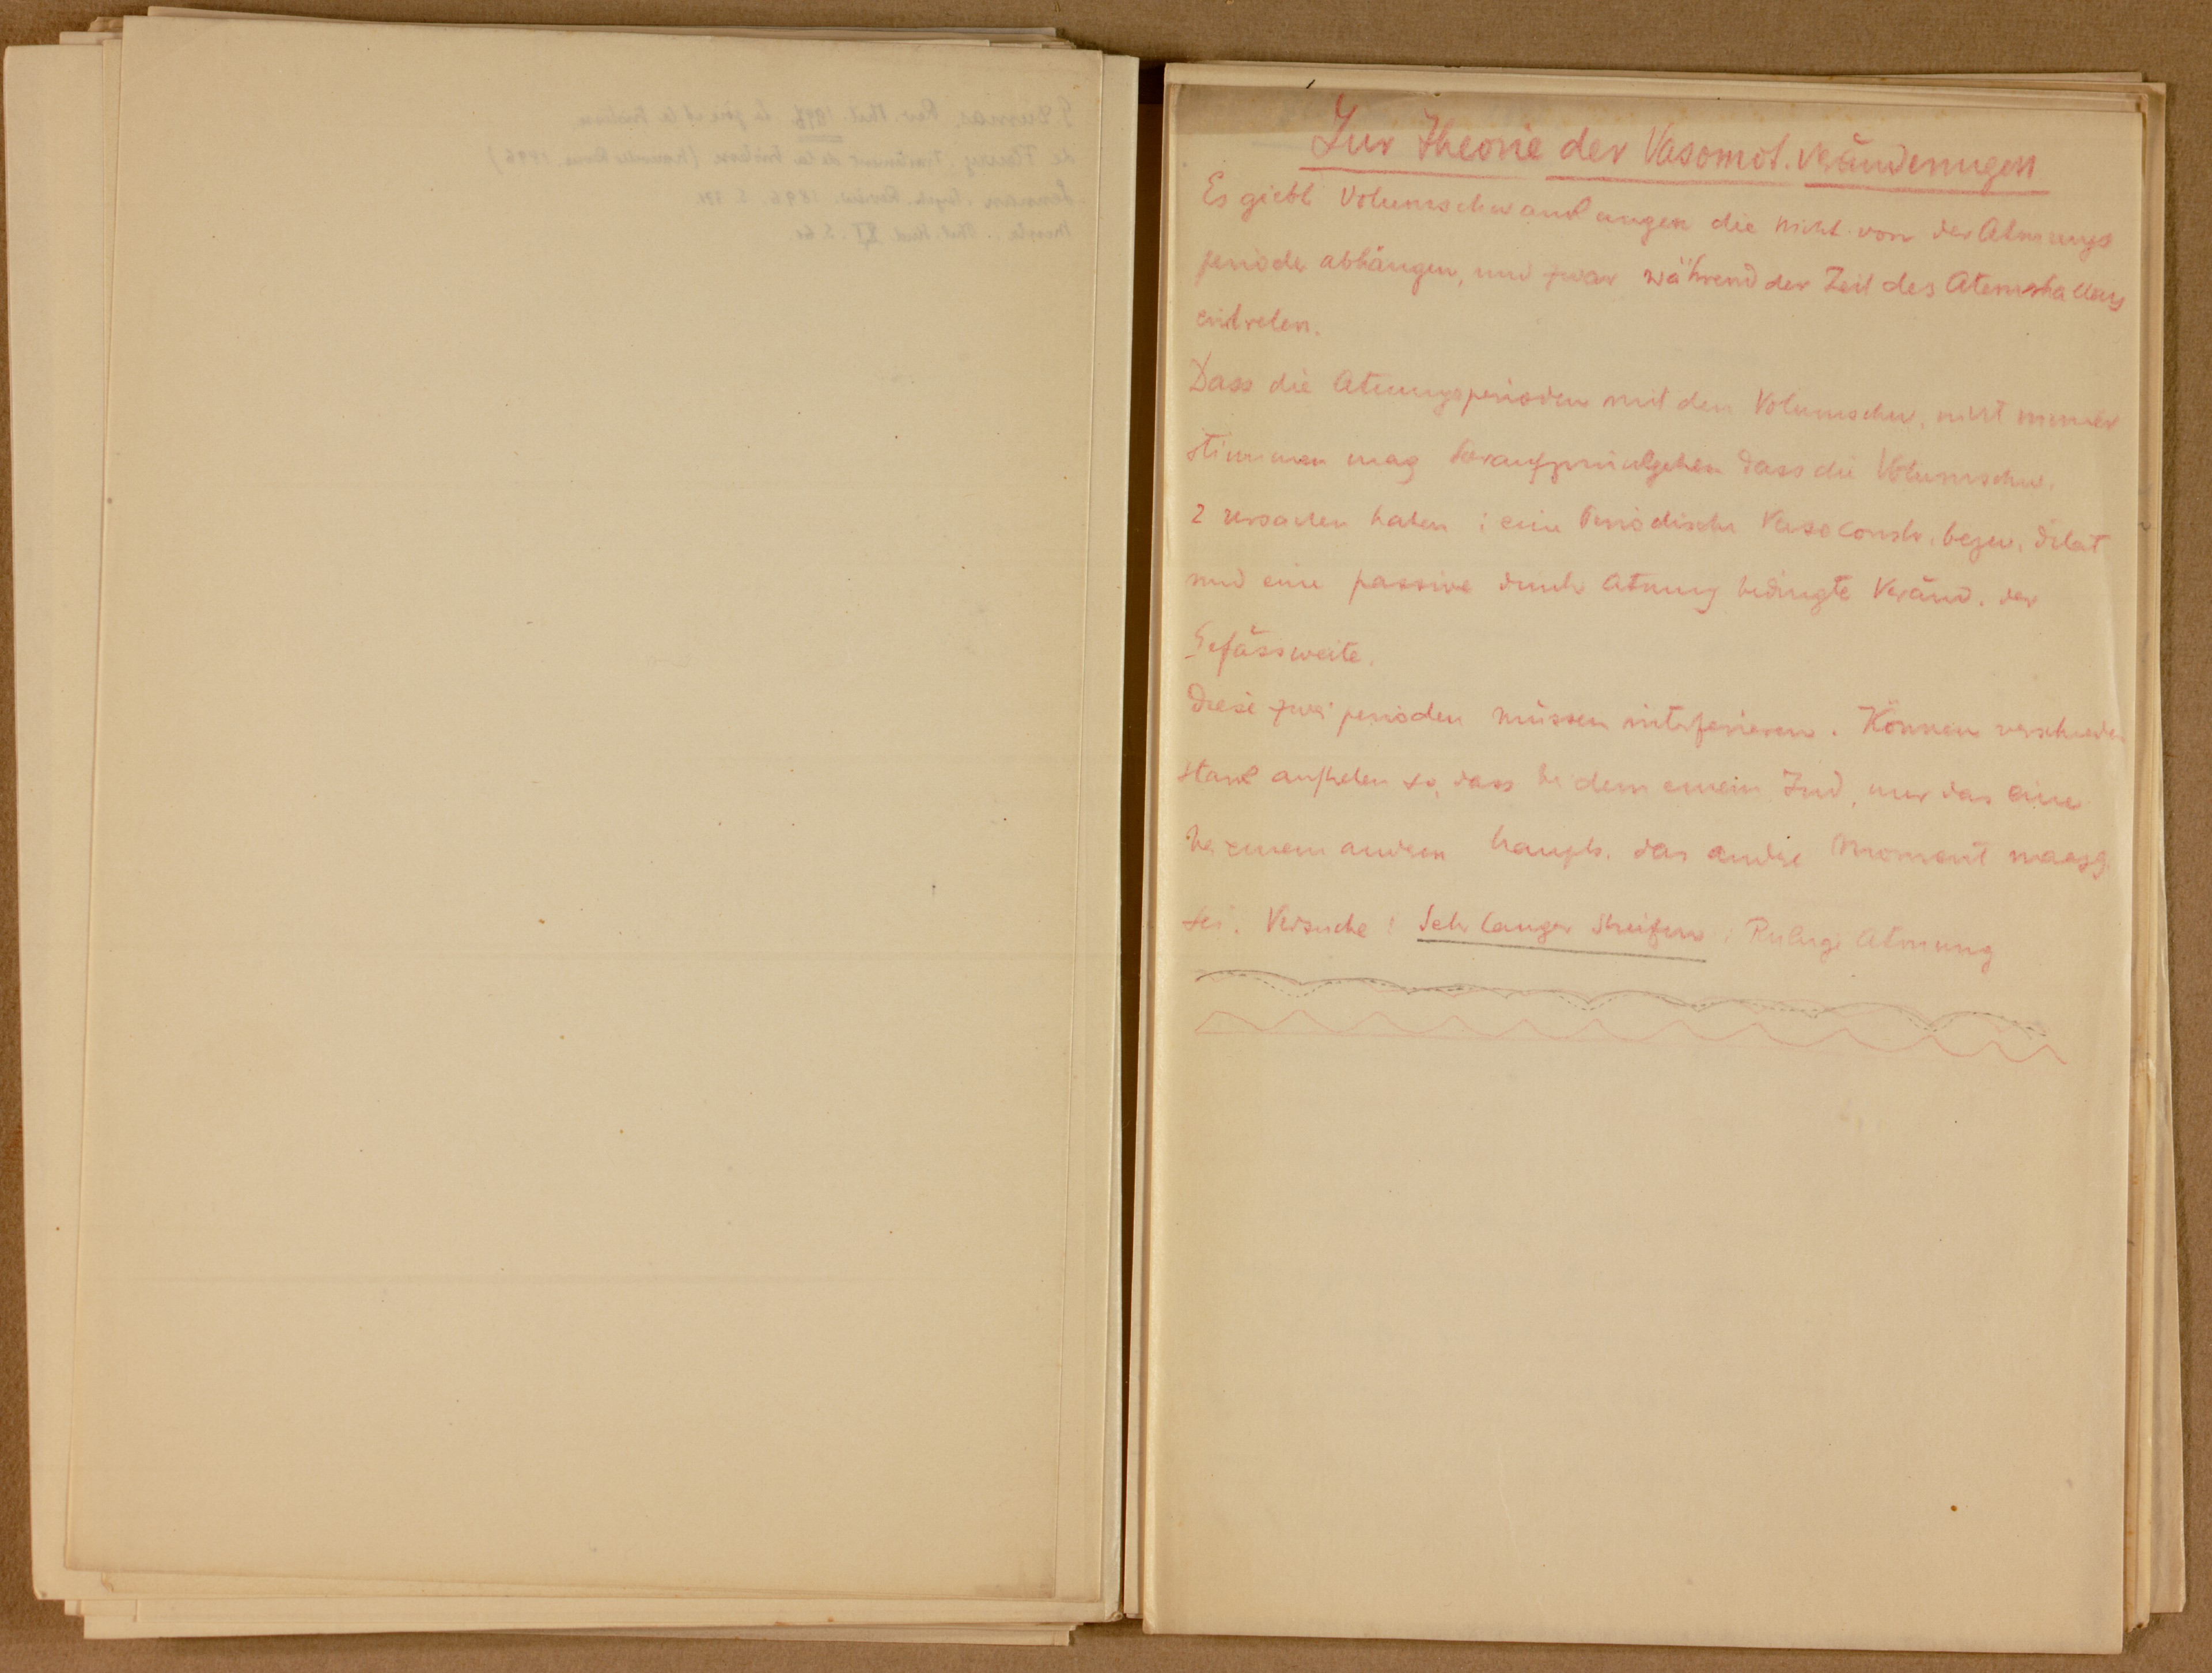 Zur Theorie der Vasomot. Veränderungen
Es giebt Volumschwankungen die nicht von der Atmungs
periode abhängen, und zwar während der Zeit des Atemshaltens
eintreten.
Dass die Atmungsperioden mit den Volumschw. nicht immer
stimmen mag daraufzurückgehen dass die Volumschw.
2 Ursachen haben: eine Periodische Vasoconstr. bezw. dilat
und eine passive durch Atmung bedingte Veränd. der
Gefässweite.
Diese zwei perioden müssen interferieren. Können verschieden
stark auftreten so, dass bei dem einem Ind. nur das eine
bei einem andren haupts. das andre Moment maassg.
sei. Versuche: Sehr langer Streifen: Ruhige Atmung